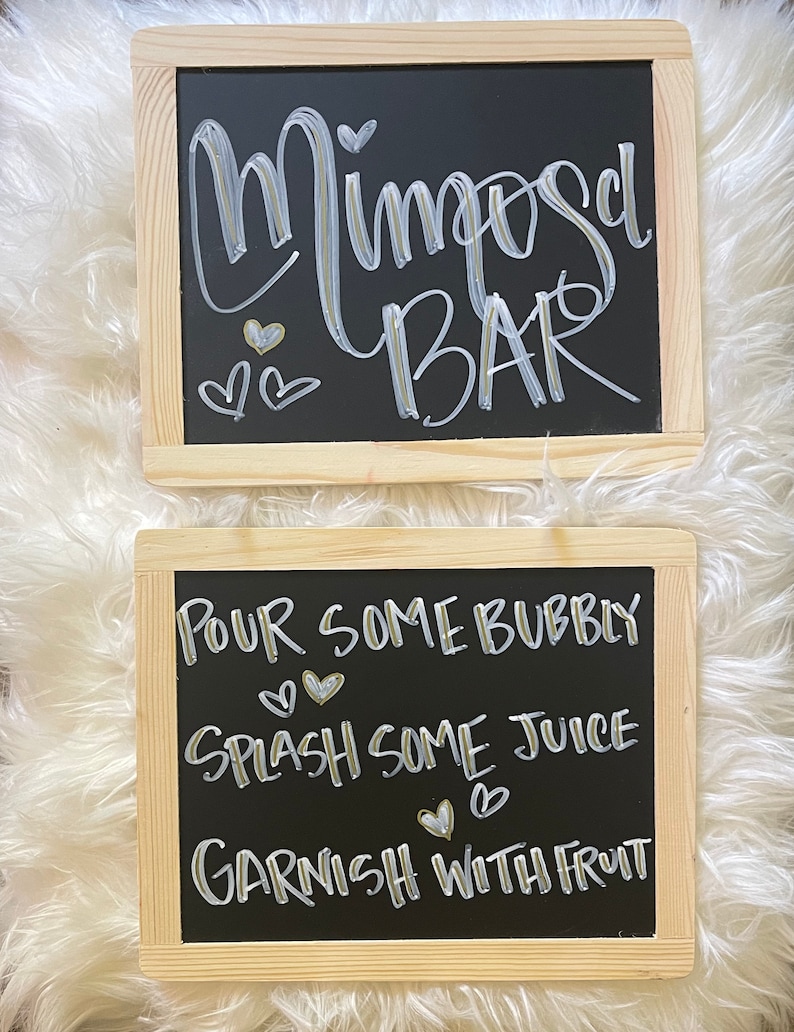 Mimosa
BAR
POUR SOME BUBBLY
SPLASH SOME JUICE
GARNISH WITH FRUIT